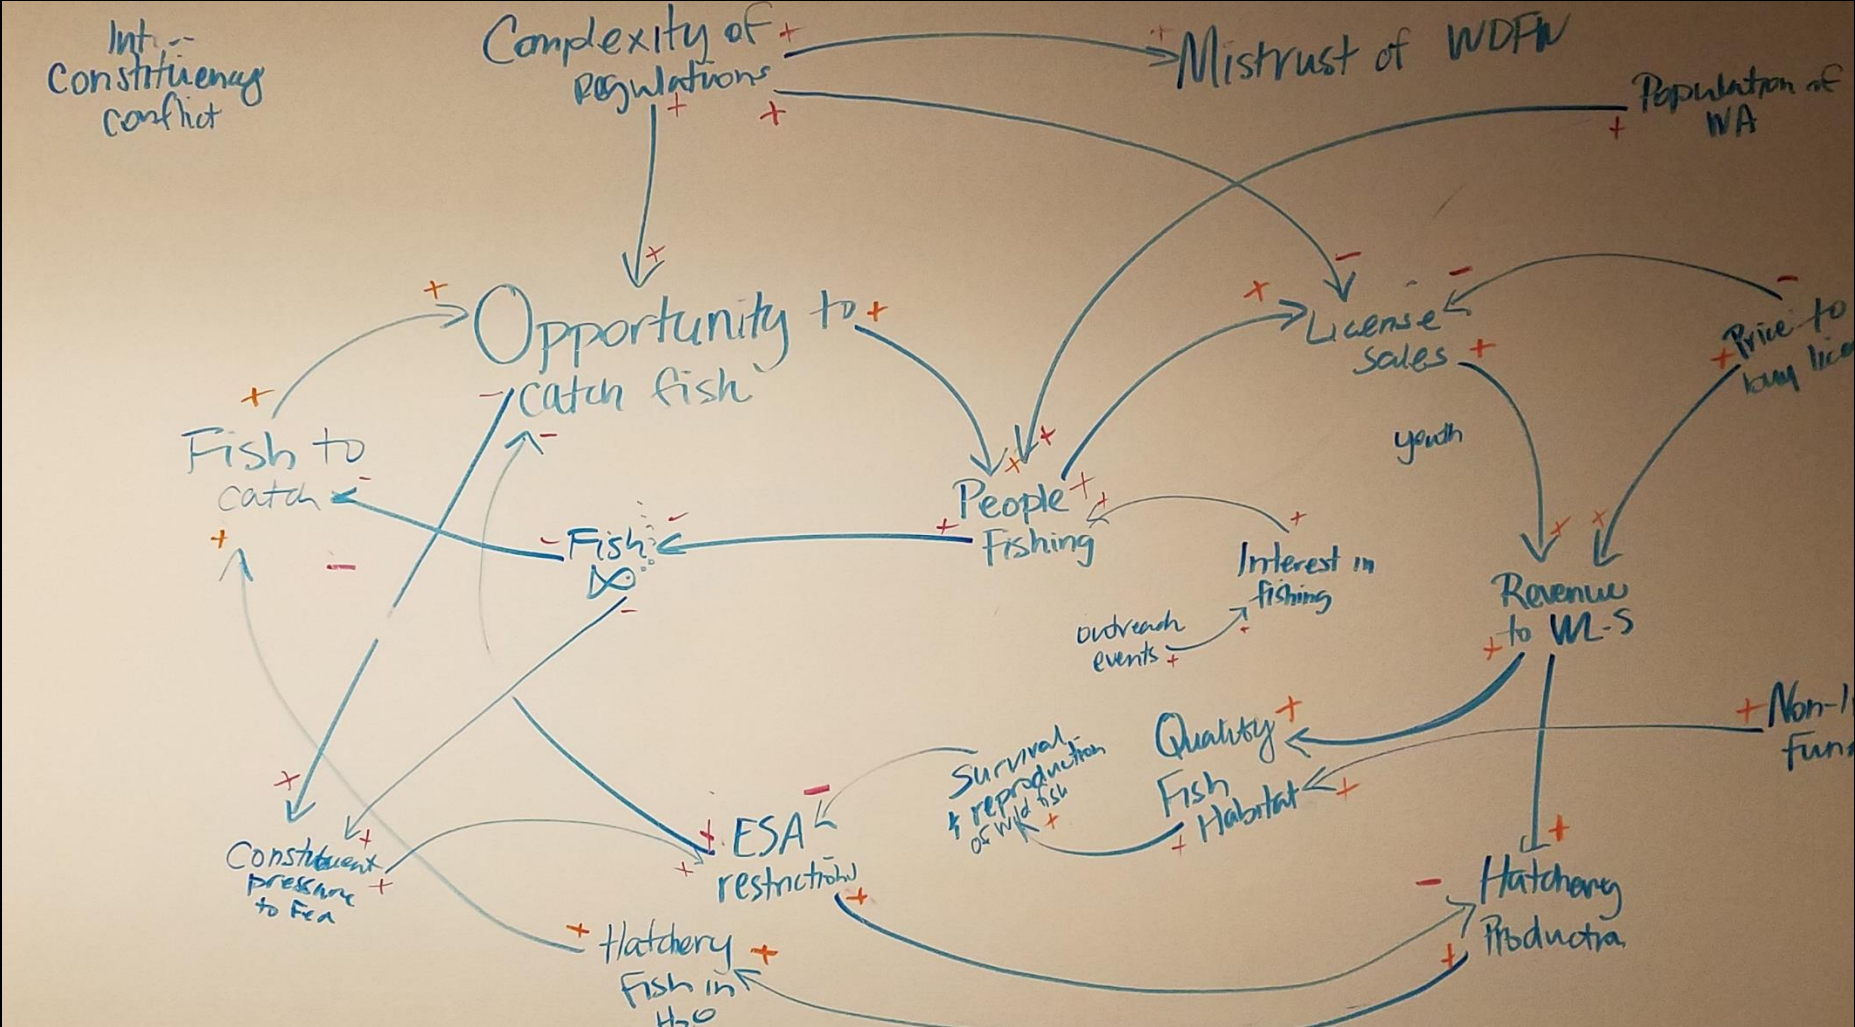 Int.
Constituency
conflict
Complexity of
Regulations
Mistrust of WDFW
Population of
WA
Opportunity to
catch fish
License
sales
Price to
buy lice
Fish to
catch
youth
People
Fishing
Fish
Interest in
fishing
outreach
events
Revenue
to WL-S
Quality
Fish
Habitat
Non-
Fun
Survival
& reproduction
of wild fish
ESA
restrictions
Constituent
pressure
to
Hatchery
Production
Hatchery
Fish in
H2O